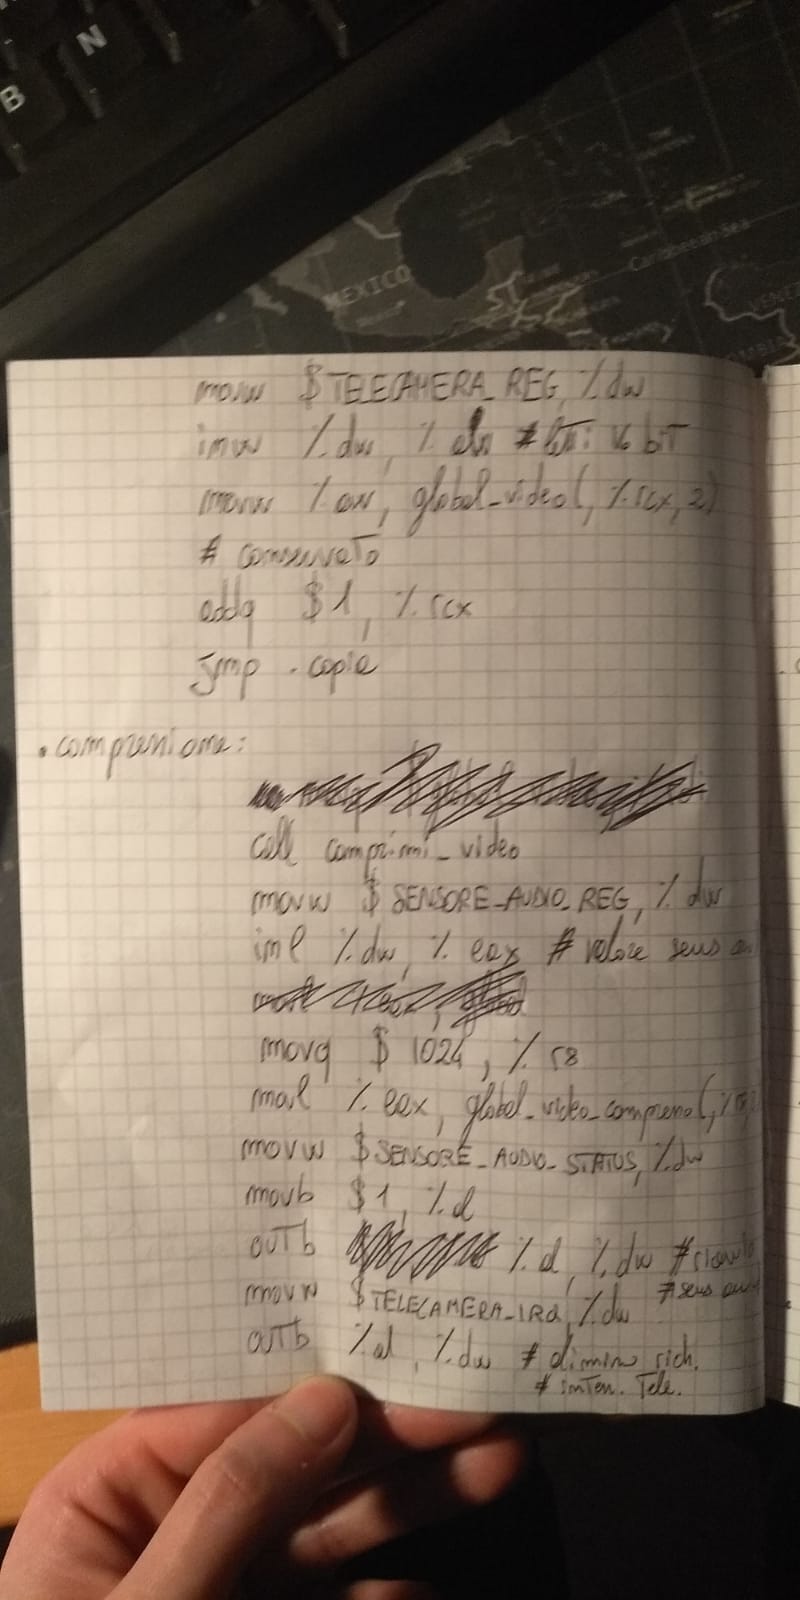 B
N
MEXICO
Caribbean Sea
movw $TELECAMERA_REG, %dw
inw %dw, % # letti 16 bit
movw %aw, global_video(, %rcx, 2)
# conservato
addq $1, %rcx
jmp .copia
.compressione:
call comprimi_video
movw $SENSORE_AUDIO_REG, %dw
inl %dw, %eax # valore sens
movq $1024, %r8
movl %eax, global_video_compresso(,
movw $SENSORE_AUDIO_STATUS, %dw
movb $1, %al
outb %al, %dw
# sens
movw $TELECAMERA_IRQ, %dw
outb %al, %dw # rich.
# inten. Tele.